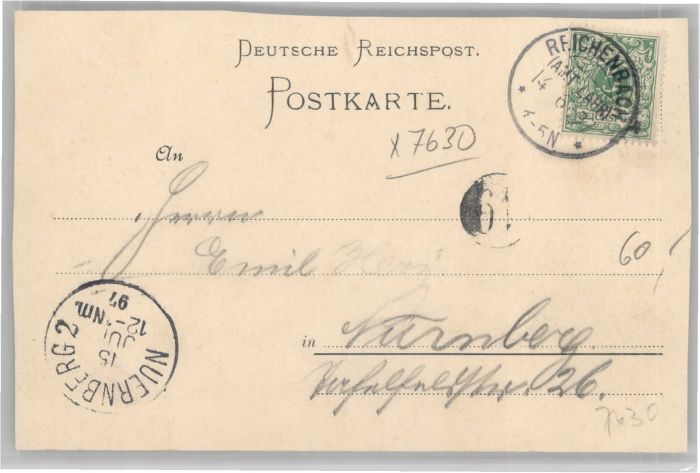 DEUTSCHE REICHSPOST.
POSTKARTE.
REICHENBACH
(AMT LAHR)
14 6
4-5N
x 7630
An
Herrn
61
Emil
60,-
NUERNBERG 2
15
JUN
12-Nm.
97
in Nürnberg
26.
7630